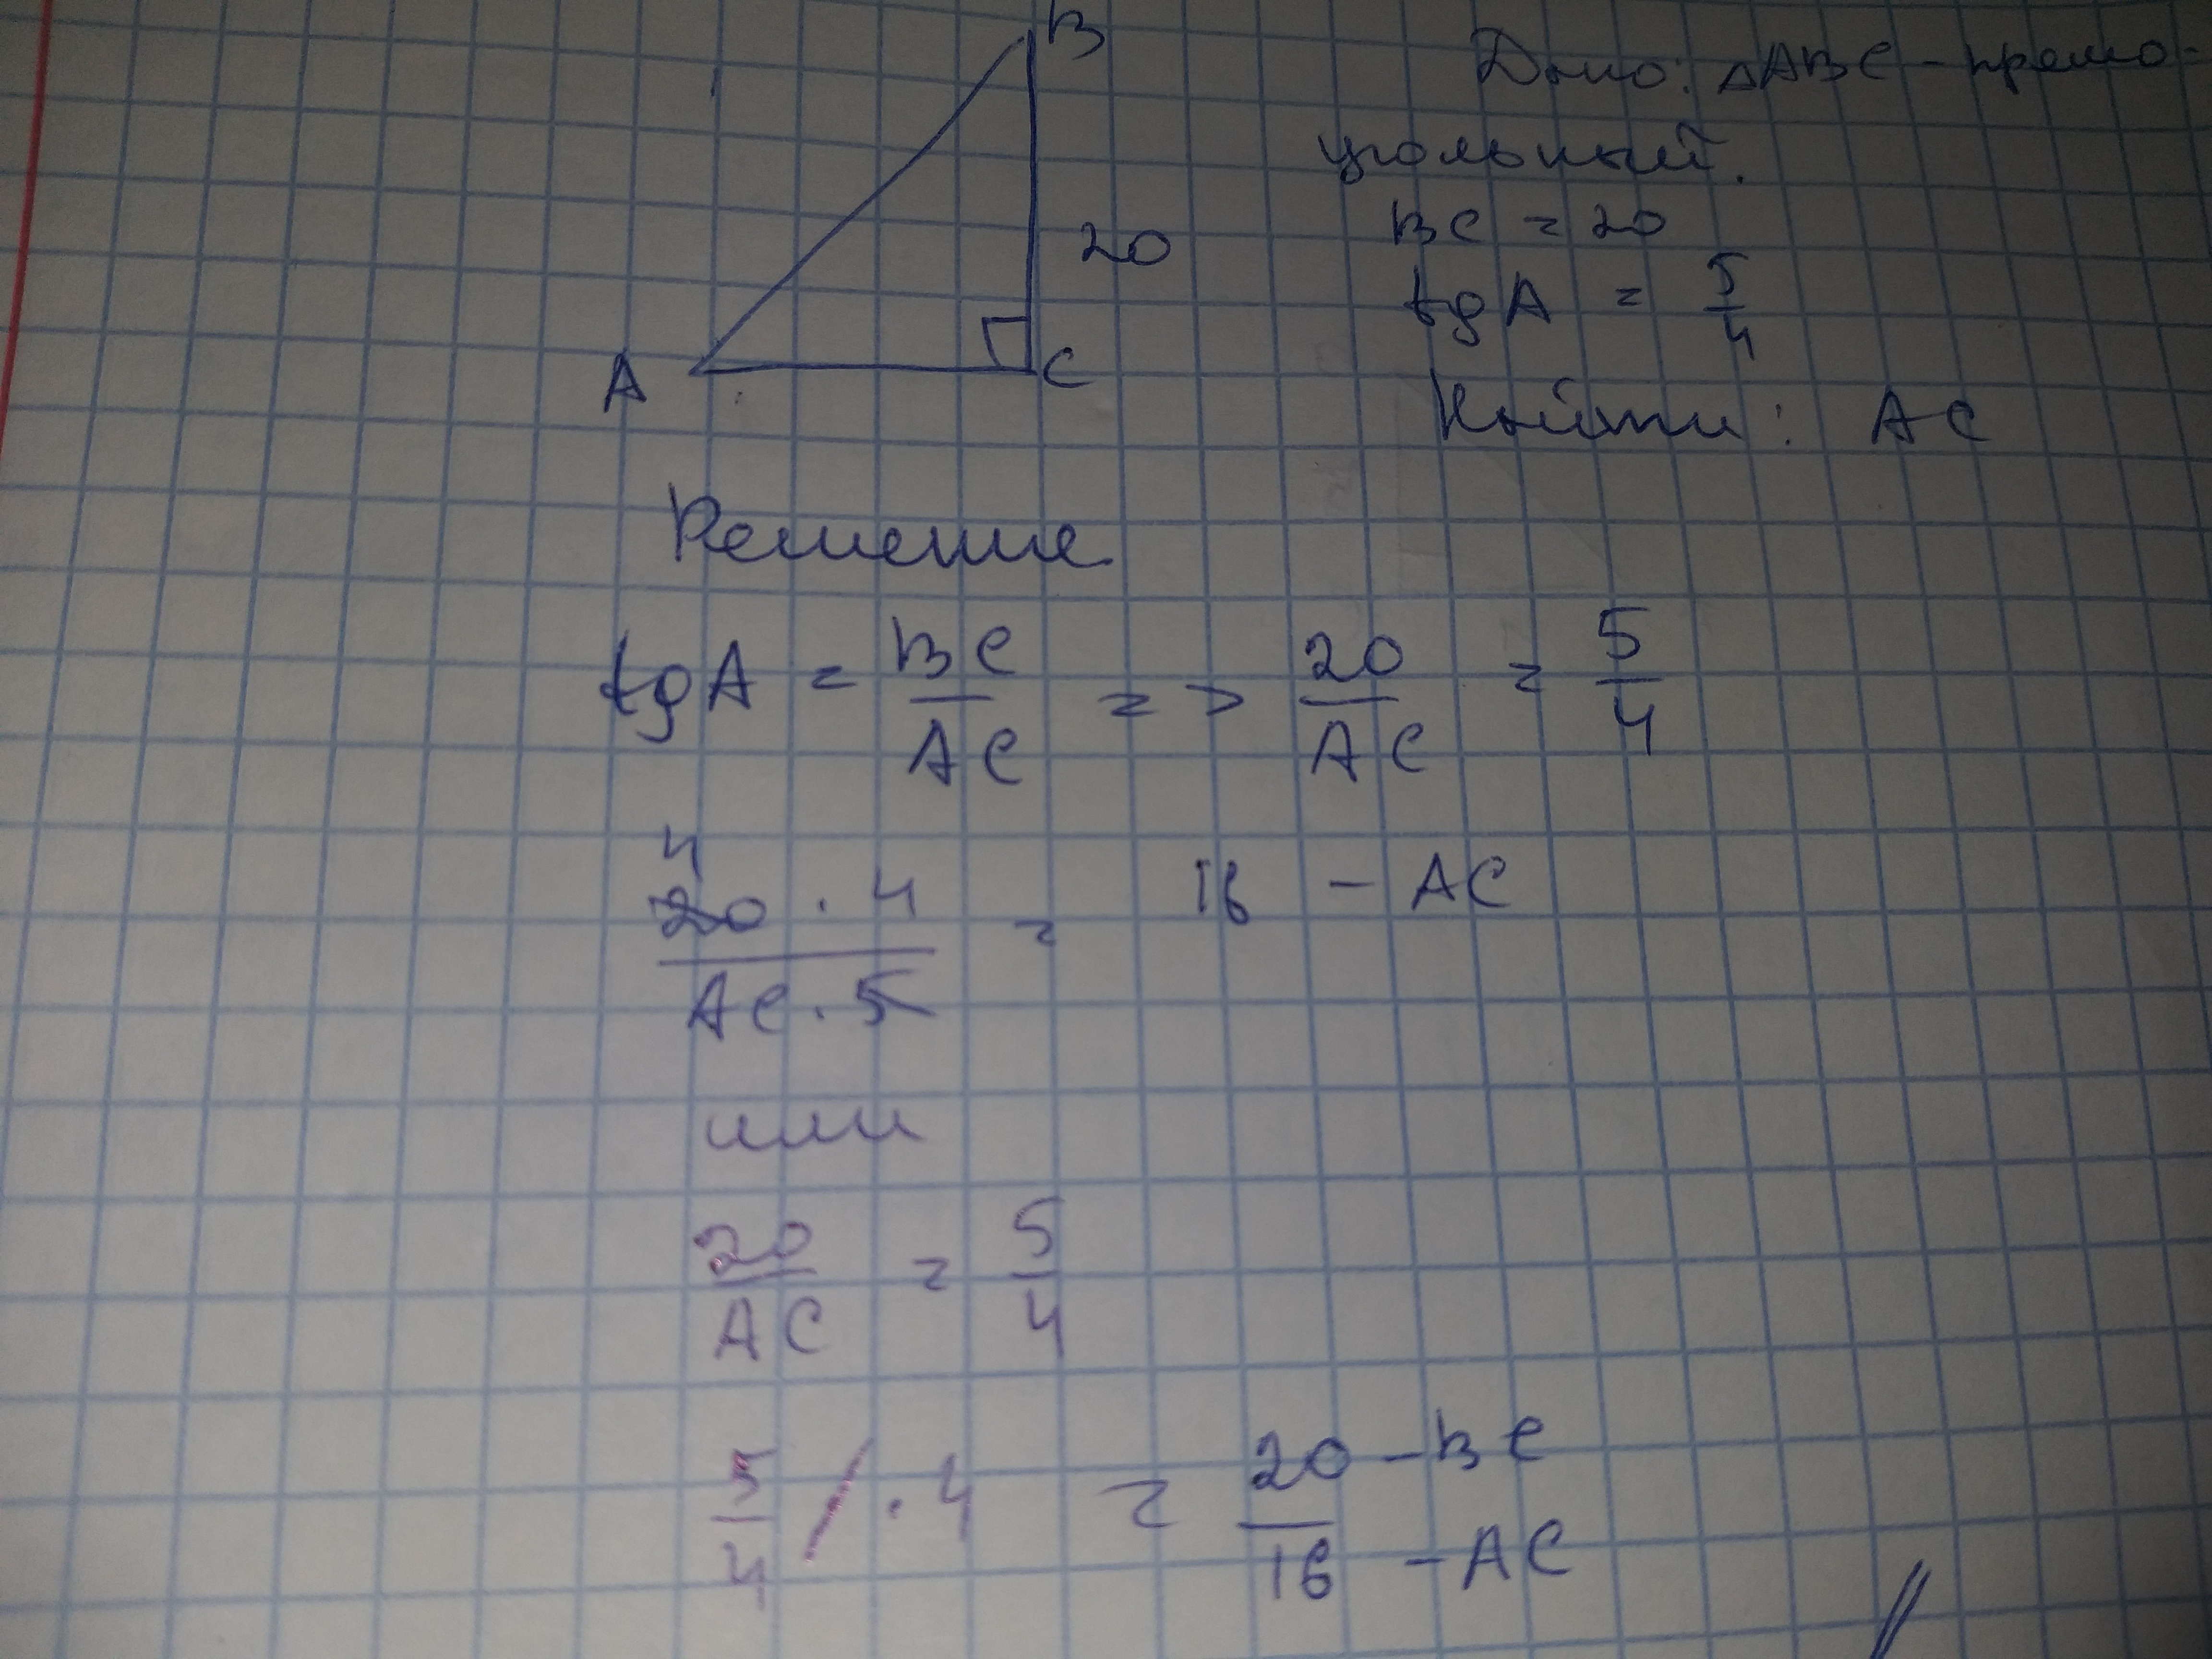 B
Дано: △ABC - прямо-
угольный.
BC = 20
20
tg A = 5/4
A
C
Найти: AC
Решение
tg A = BC/AC => 20/AC = 5/4
4
20 · 4 / AC · 5 = 16 - AC
или
20/AC = 5/4
5/4 / · 4 = 20 - BC / 16 - AC